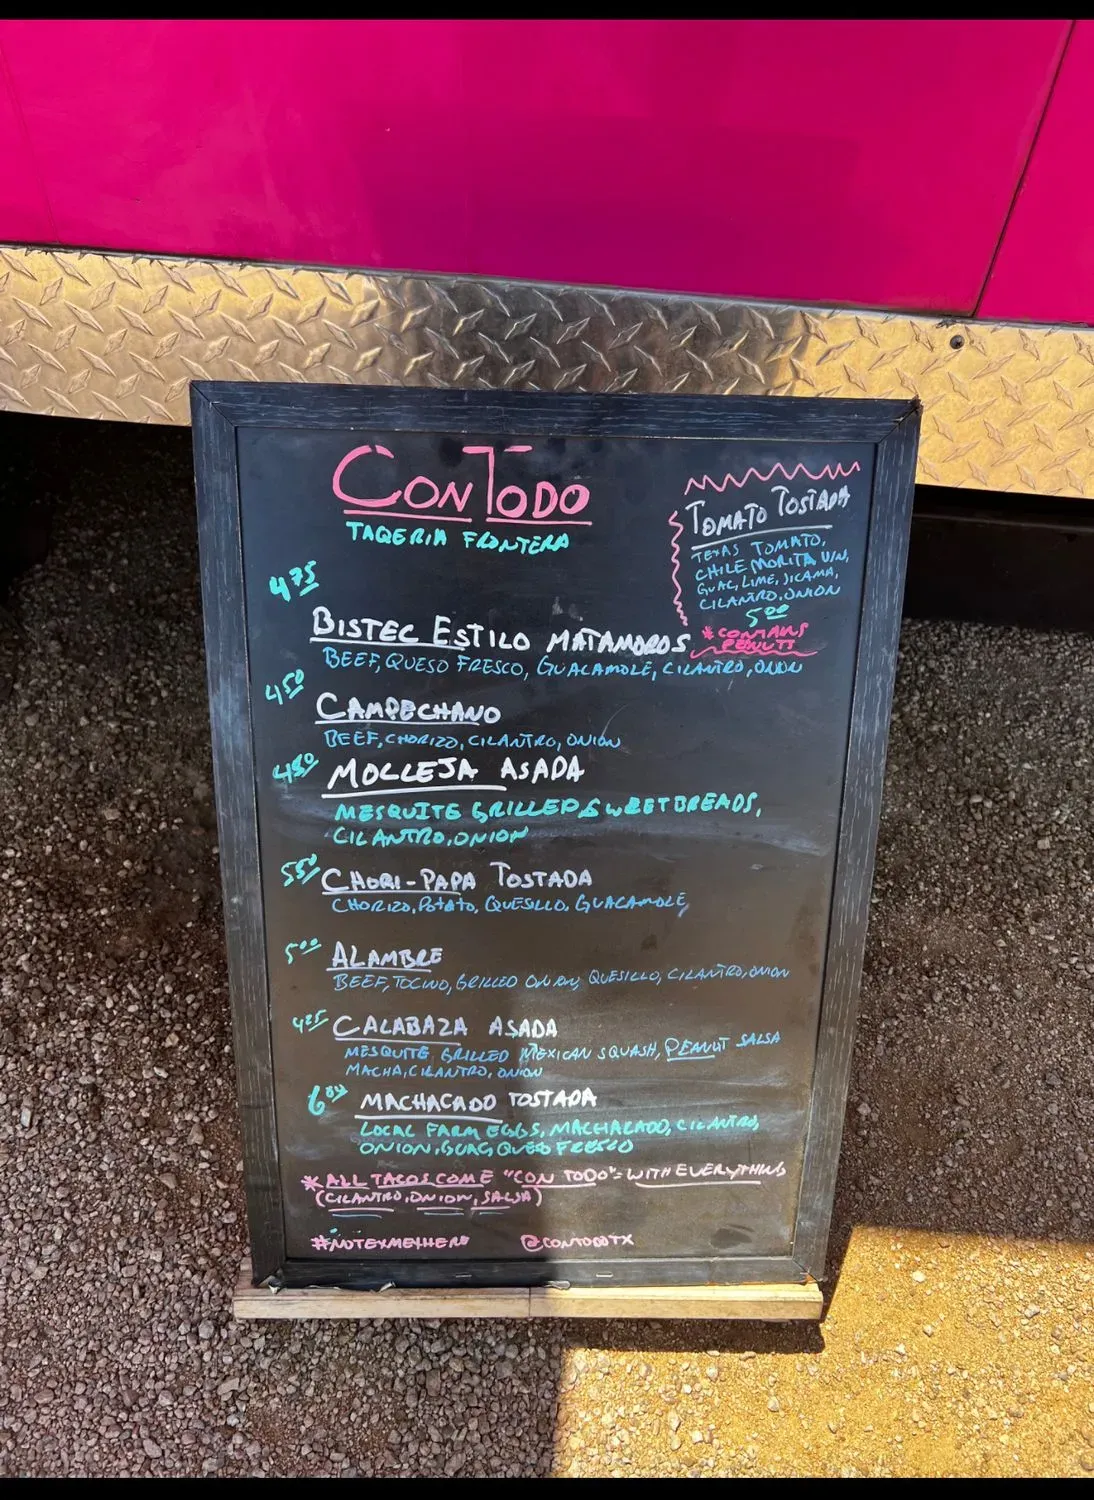 CON TODO
TAQERIA FRONTERA
TOMATO TOSTADA
TEXAS TOMATO,
CHILE MORITA VIN,
GUAC, LIME, JICAMA,
CILANTRO, ONION
5.00
*CONTAINS
PEANUTS
4.75
BISTEC ESTILO MATAMOROS
BEEF, QUESO FRESCO, GUACAMOLE, CILANTRO, ONION
4.50
CAMPECHANO
BEEF, CHORIZO, CILANTRO, ONION
4.50
MOLLEJA ASADA
MESQUITE GRILLED SWEETBREADS,
CILANTRO, ONION
5.50
CHORI-PAPA TOSTADA
CHORIZO, POTATO, QUESILLO, GUACAMOLE,
5.00
ALAMBRE
BEEF, TOCINO, GRILLED ONION, QUESILLO, CILANTRO, ONION
CALABAZA ASADA
MESQUITE GRILLED MEXICAN SQUASH, PEANUT SALSA
MACHA, CILANTRO, ONION
MACHACADO TOSTADA
LOCAL FARM EGGS, MACHACADO, CILANTRO,
ONION, GUAC, QUESO FRESCO
*ALL TACOS COME "CON TODO"=WITH EVERYTHING
(CILANTRO, ONION, SALSA)
#NOTEXMEXHERE @CONTODOTX